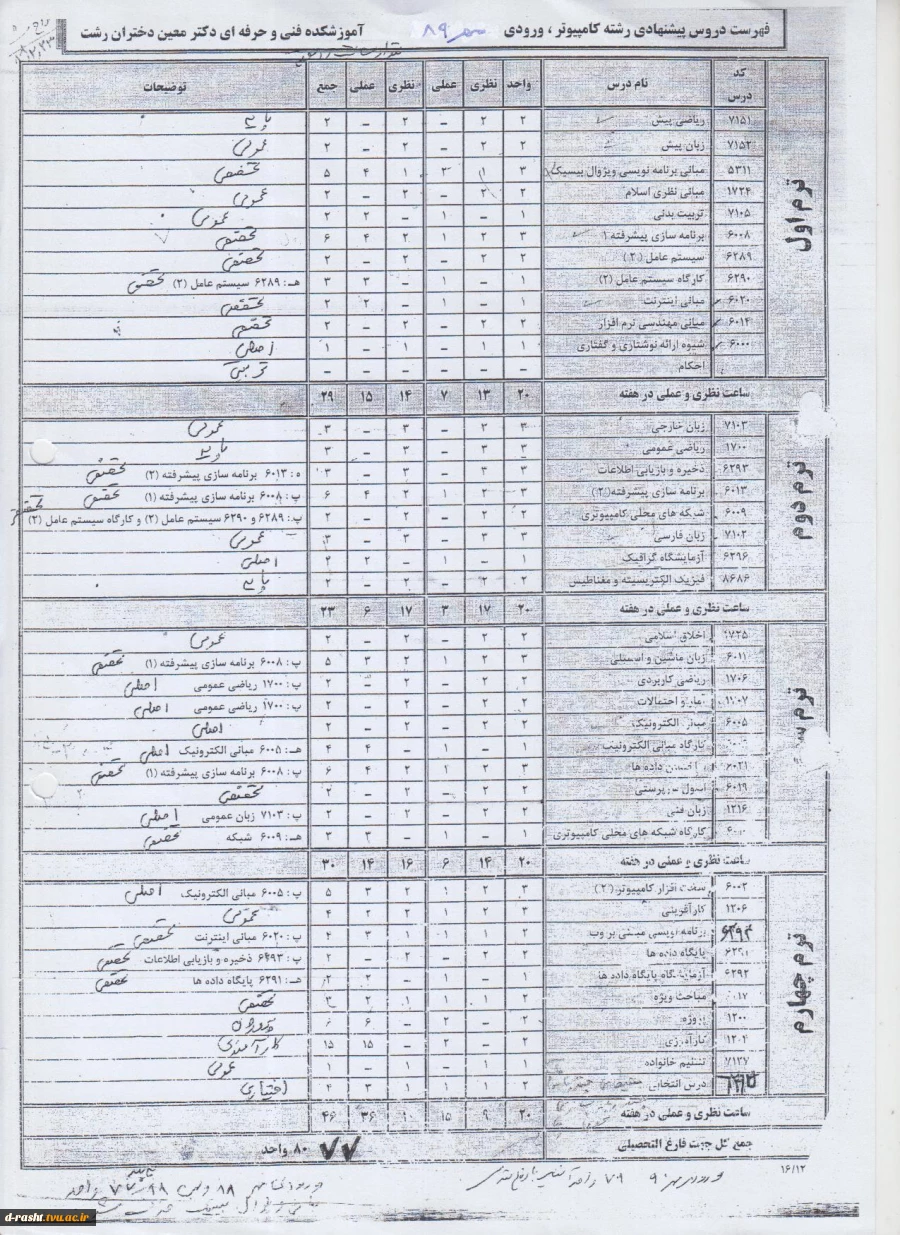 فهرست دروس پیشنهادی رشته کامپیوتر ، ورودی مهر ۸۹ آموزشکده فنی و حرفه ای دکتر معین دختران رشت
کد درس نام درس واحد نظری عملی نظری عملی جمع توضیحات
ترم اول
۷۱۵۱ ریاضی پیش ۲ ۲ – ۲ – ۲ پایه
۷۱۵۲ زبان پیش ۲ ۲ – ۲ – ۲ عمومی
۵۳۱۱ مبانی برنامه نویسی ویژوال بیسیک ۳ ۱ ۴ ۵ تخصصی
۱۷۲۴ مبانی نظری اسلام ۲ ۲ – ۲ – ۲ عمومی
۷۱۰۵ تربیت بدنی ۱ – ۱ – ۲ ۲ عمومی
۶۰۰۸ برنامه سازی پیشرفته ۱ ۳ ۲ ۱ ۲ ۴ ۶ تخصصی
۶۲۸۹ سیستم عامل (۲) ۲ ۲ – ۲ – ۲ تخصصی
۶۲۹۰ کارگاه سیستم عامل (۲) ۱ – ۱ – ۳ ۳ هـ: ۶۲۸۹ سیستم عامل (۲) تخصصی
۶۰۲۰ مبانی اینترنت ۱ – ۱ – ۲ ۲ تخصصی
۶۰۱۴ مبانی مهندسی نرم افزار ۲ ۲ – ۲ – ۲ تخصصی
۶۰۰۰ شیوه ارائه نوشتاری و گفتاری ۱ ۱ – ۱ – ۱ اصلی
احکام – – – – – –
ساعت نظری و عملی در هفته ۲۰ ۱۳ ۷ ۱۴ ۱۵ ۲۹
ترم دوم
۷۱۰۳ زبان خارجی ۳ ۳ – ۳ – ۳ عمومی
۱۷۰۰ ریاضی عمومی ۳ ۳ – ۳ – ۳ پایه
۶۲۹۳ ذخیره و بازیابی اطلاعات ۳ ۳ – ۳ – ۳ ه : ۶۰۱۳ برنامه سازی پیشرفته (۲) تخصصی
۶۰۱۳ برنامه سازی پیشرفته (۲) ۳ ۲ ۱ ۲ ۴ ۶ پ : ۶۰۰۸ برنامه سازی پیشرفته (۱) تخصصی
۶۰۰۹ شبکه های محلی کامپیوتری ۲ ۲ – ۲ – ۲ پ: ۶۲۸۹ و ۶۲۹۰ سیستم عامل (۲) و کارگاه سیستم عامل (۲) تخصصی
۷۱۰۲ زبان فارسی ۳ ۳ – ۳ – ۳ عمومی
۶۲۹۶ آزمایشگاه گرافیک ۱ – ۱ – ۲ ۲ اصلی
۸۶۸۶ فیزیک الکتریسیته و مغناطیس ۲ ۲ – ۲ – ۲ پایه
ساعت نظری و عملی در هفته ۲۰ ۱۷ ۳ ۱۷ ۶ ۲۳
ترم
۱۷۲۵ اخلاق اسلامی ۲ ۲ – ۲ – ۲ عمومی
۶۰۱۱ زبان ماشین و اسمبلی ۳ ۲ ۱ ۲ ۳ ۵ پ : ۶۰۰۸ برنامه سازی پیشرفته (۱) تخصصی
۱۷۰۶ ریاضی کاربردی ۲ ۲ – ۲ – ۲ پ : ۱۷۰۰ ریاضی عمومی اصلی
آمار و احتمالات ۲ ۲ – ۲ – ۲ پ : ۱۷۰۰ ریاضی عمومی اصلی
۶۰۰۵ مبانی الکترونیک ۲ ۲ – ۲ – ۲ اصلی
کارگاه مبانی الکترونیک ۱ – ۱ – ۴ ۴ هـ: ۶۰۰۵ مبانی الکترونیک اصلی
۶۰۲۱ داده ها ۳ ۲ ۱ ۲ ۴ ۶ پ : ۶۰۰۸ برنامه سازی پیشرفته (۱) تخصصی
۶۰۱۹ اصول سرپرستی ۲ ۲ – ۲ – ۲ تخصصی
۱۲۱۶ زبان فنی ۲ ۲ – ۲ – ۲ پ : ۷۱۰۳ زبان عمومی اصلی
کارگاه شبکه های محلی کامپیوتری ۱ – ۱ – ۳ ۳ هـ: ۶۰۰۹ شبکه تخصصی
ساعت نظری و عملی در هفته ۲۰ ۱۴ ۶ ۱۶ ۱۴ ۳۰
ترم چهارم
۶۰۰۲ سخت افزار کامپیوتر (۲) ۳ ۲ ۱ ۲ ۳ ۵ پ : ۶۰۰۵ مبانی الکترونیک اصلی
۱۲۰۶ کارآفرینی ۳ ۲ ۱ ۲ ۲ ۴ عمومی
۶۲۹۴ برنامه نویسی مبتنی بر وب ۲ ۱ ۱ ۱ ۳ ۴ پ : ۶۰۲۰ مبانی اینترنت تخصصی
۶۲۹۱ پایگاه داده ها ۲ ۲ – ۲ – ۲ پ: ۶۲۹۳ ذخیره و بازیابی اطلاعات تخصصی
۶۲۹۲ آزمایشگاه پایگاه داده ها ۱ – ۱ – ۲ ۲ هـ: ۶۲۹۱ پایگاه داده ها تخصصی
مباحث ویژه ۲ ۱ ۱ ۱ ۲ ۳ تخصصی
۱۲۰۰ پروژه ۲ – ۲ – ۶ ۶
۱۲۰۴ کارآموزی ۲ – ۲ – ۱۵ ۱۵ کارآموزی
۷۱۲۷ تنظیم خانواده ۱ ۱ – ۱ – ۱ عمومی
درس انتخابی ۲ ۱ ۱ ۱ ۳ ۴ اختیاری
ساعت نظری و عملی در هفته ۲۰ ۹ ۱۵ ۱۰ ۳۶ ۴۶
جمع کل جهت فارغ التحصیلی ۷۷ ۸۰ واحد
۱۶/۱۲
d-rasht.tvu.ac.ir